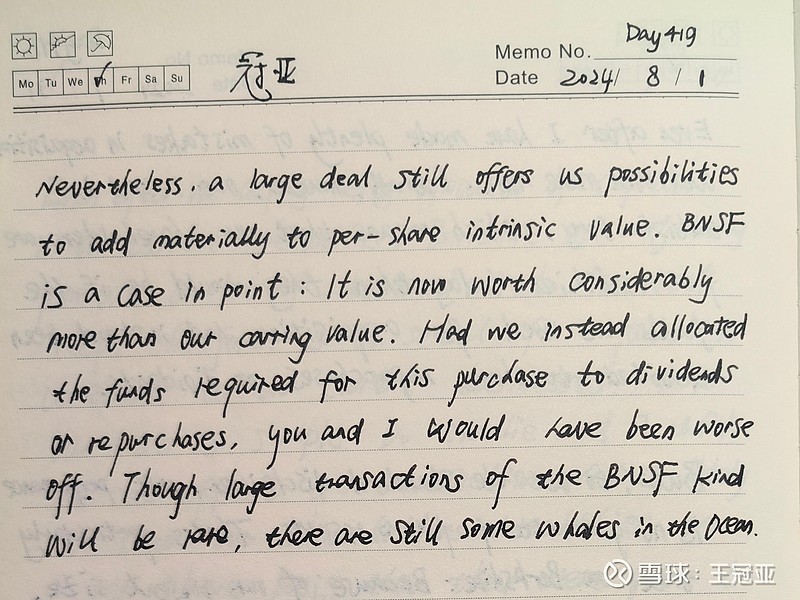 Day 419
Memo No.
Mo Tu We Th Fr Sa Su
冠亚
Date 2024/ 8 / 1
Nevertheless, a large deal still offers us possibilities
to add materially to per-share intrinsic value. BNSF
is a case in point: It is now worth considerably
more than our carring value. Had we instead allocated
the funds required for this purchase to dividends
or repurchases, you and I would have been worse
off. Though large transactions of the BNSF kind
will be rare, there are still some whales in the ocean.
雪球:王冠亚